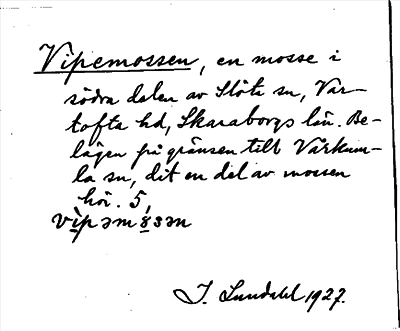 Vipemossen, en mosse i
södra delen av Slöta sn, Var-
tofta hd, Skaraborgs län. Be-
lägen på gränsen till Vårkum-
la sn, dit en del av mossen
hör. 5,
vipəm
J. Lundahl 1927.